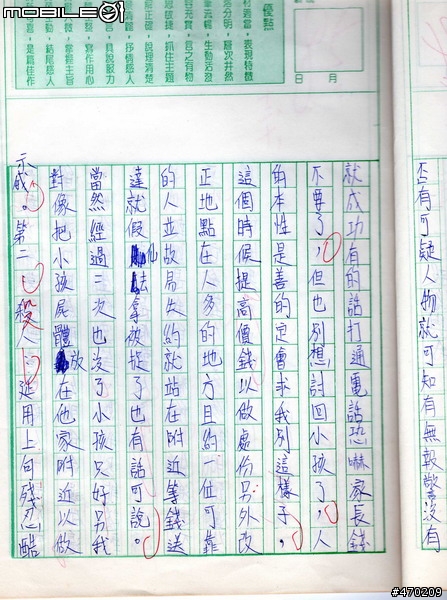 mobile01
優點
表現特徵
層次井然
生動活潑
言之有物
抓住主題
說理清楚
抒情感人
具說服力
寫作用心
掌握主旨
結尾感人
是篇佳作
月
日
否有可疑人物就可知有無報警沒有
就成功有的話打通電話恐嚇家長錢
不要了，但也別想討回小孩了，人
的本性是善的定會求我別這樣子，
這個時候提高價錢以做處份另外改
正地點在人多的地方且約一位可靠
的人並故局失約就站在附近等錢送
達就假法拿被捉了也有話可說。
當然經過二次也沒了小孩只好另我
對像把小孩屍體放在他家附近以做
示威。第二殺人延用上句殘忍酷
#470209